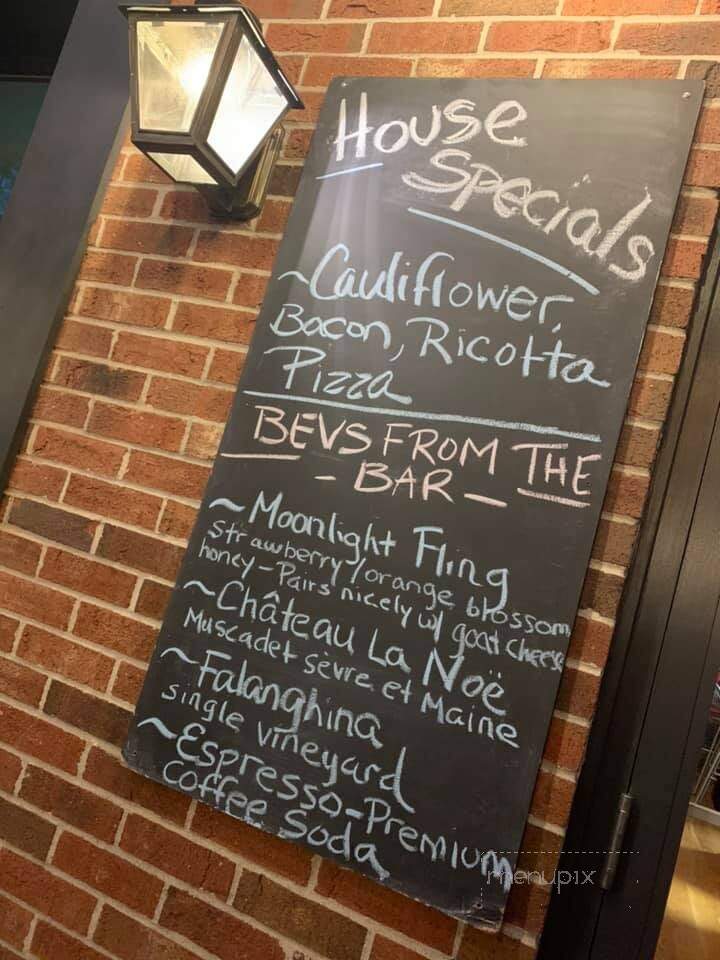 House
Specials
~Cauliflower,
Bacon, Ricotta
Pizza
BEVS FROM THE
- BAR -
~Moonlight Fling
Strawberry/orange blossom
honey-Pairs nicely w/ goat cheese
~Château La Noë
Muscadet sèvre et Maine
~Falanghina
single vineyard
~Espresso-Premium
Coffee Soda
menupix